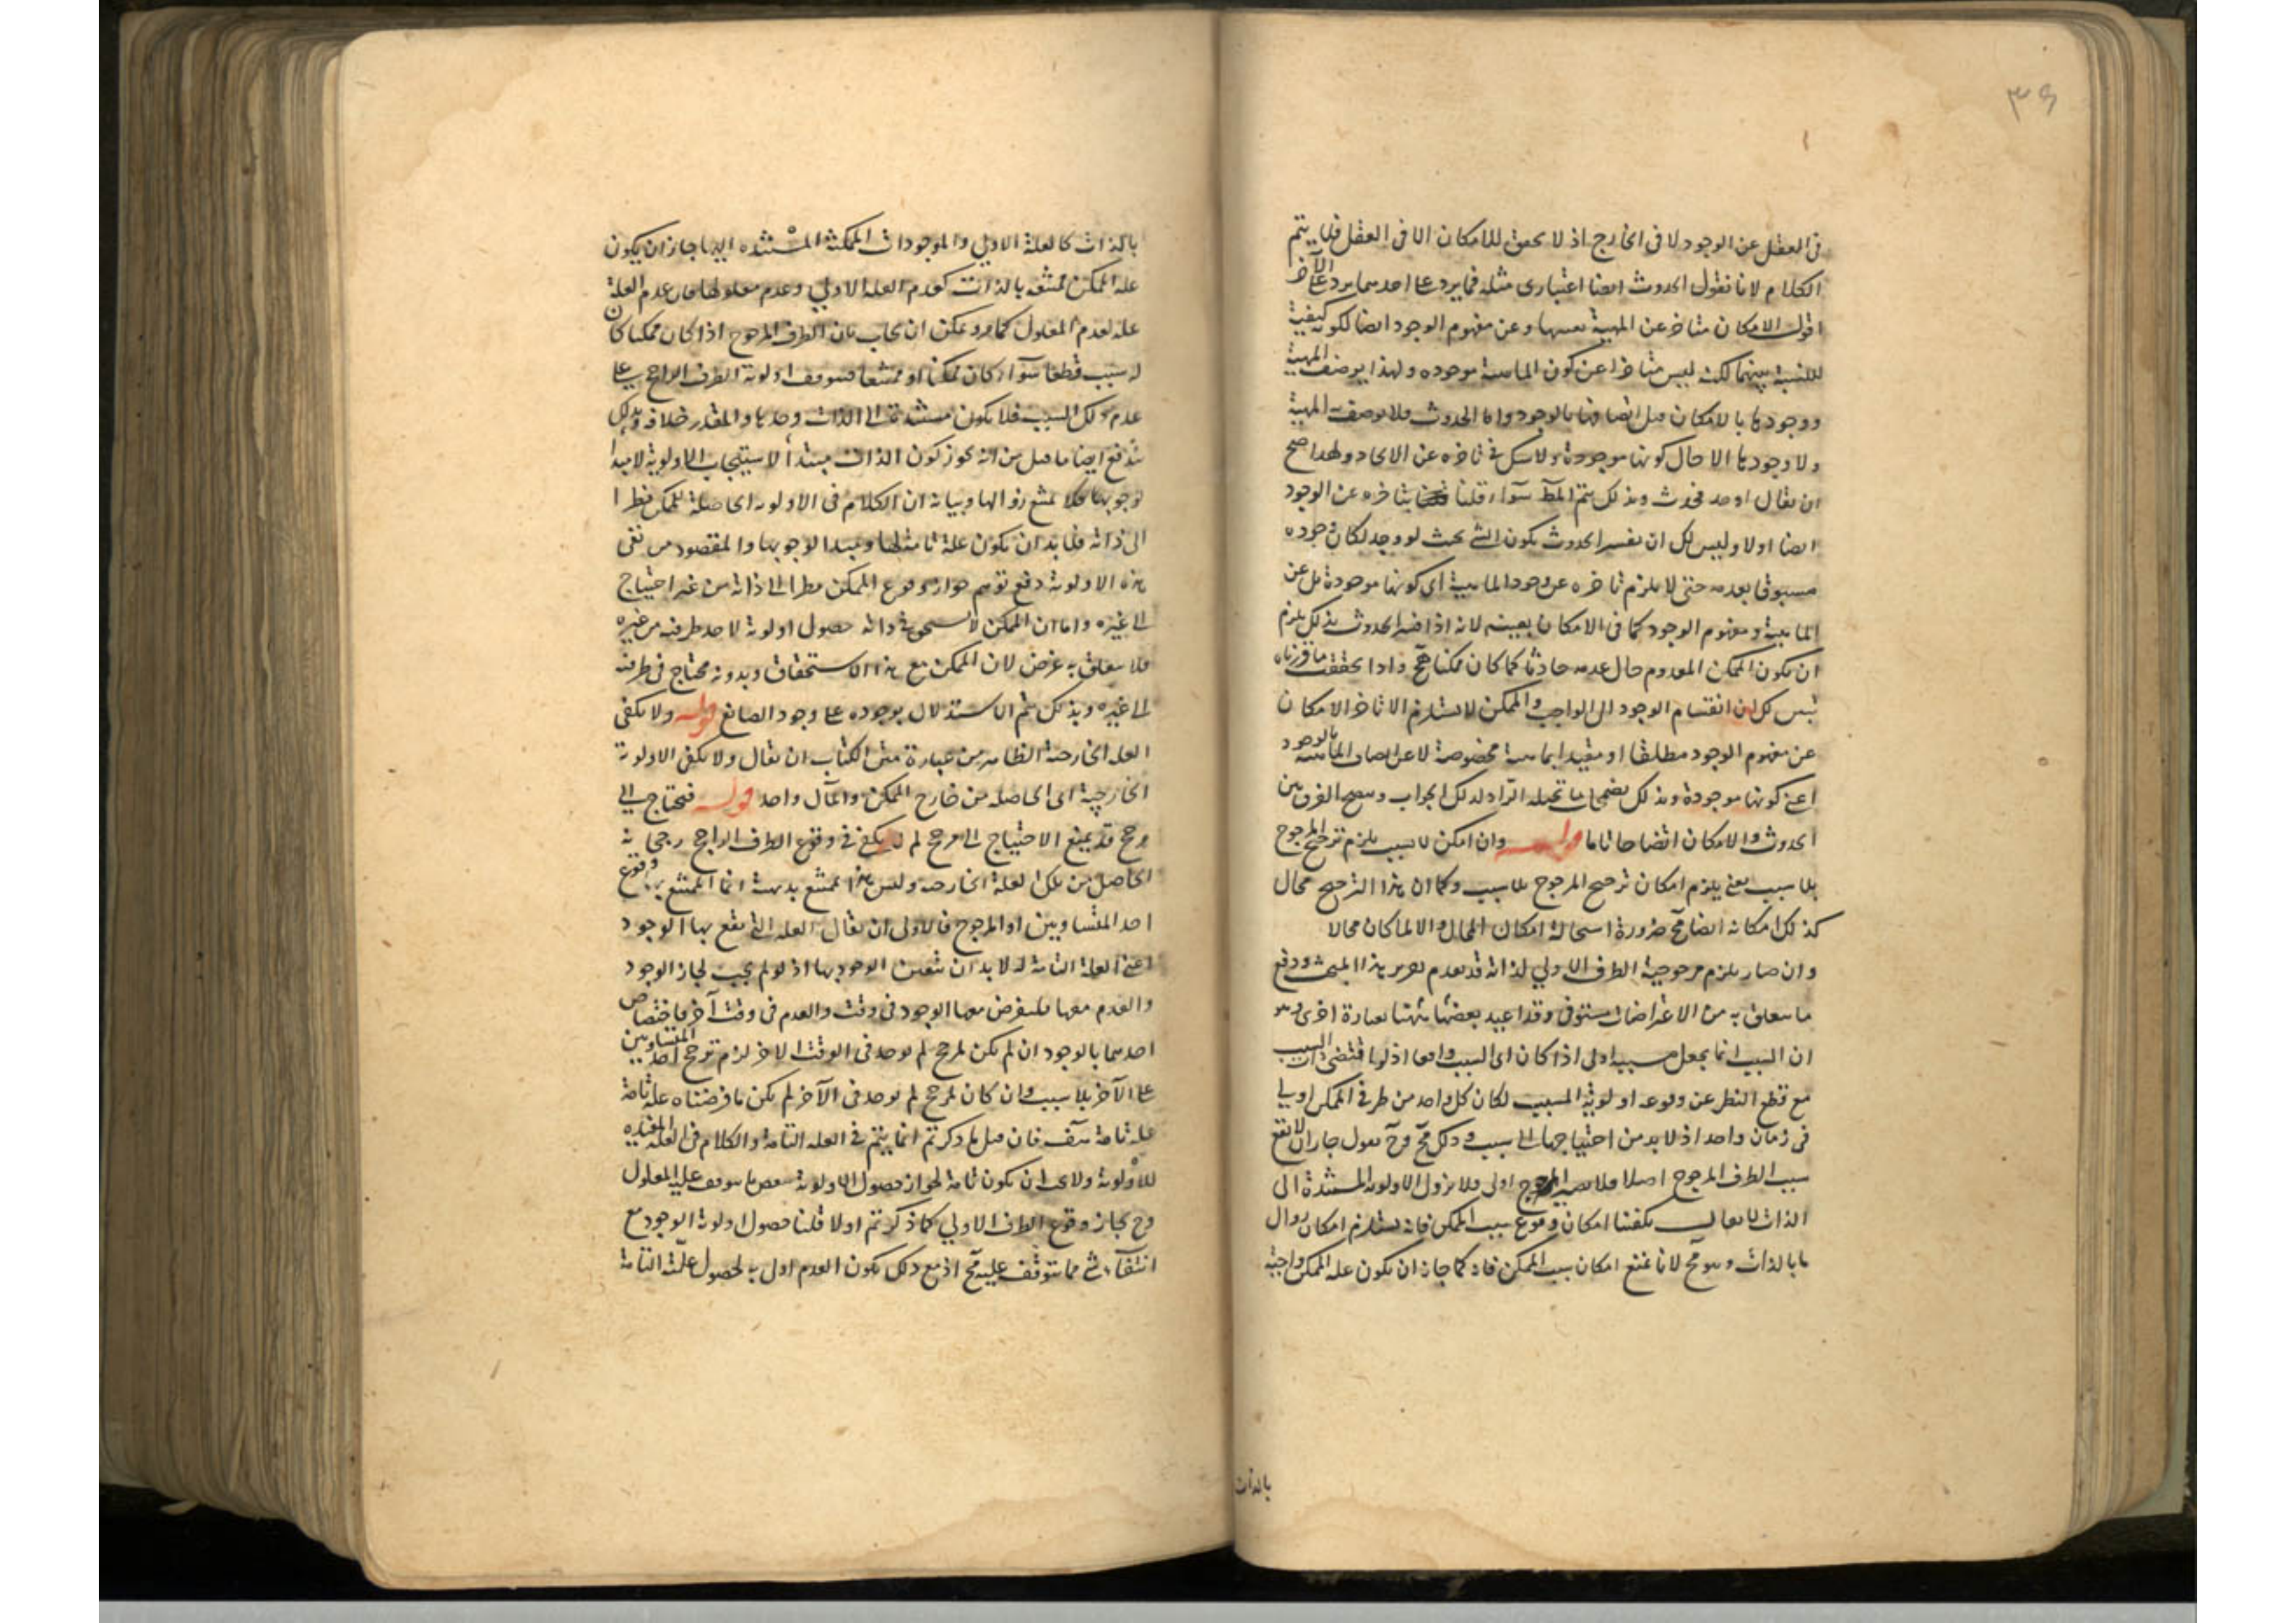 ٣٩
فى العقل عن الوجود لا فى الخارج اذ لا تحقق للامكان الا فى العقل فلا يتم
الكلام لانا نقول الحدوث ايضا اعتبارى مثله فما يرد على احدهما يرد على الآخر
اقول الامكان متاخر عن المهية نفسها وعن مفهوم الوجود ايضا لكونه كيفية
للنسبة بينهما لكنه ليس متاخرا عن كون الماهية موجوده ولهذا يوصف المهية
ووجودها بالامكان قبل اتصافها بالوجود واما الحدوث فلا يوصف به المهية
ولا وجودها الا حال كونها موجودة ولا شك فى تاخره عن الايجاد ولهذا صح
ان يقال اوجد فحدث وبذلك يتم المط سوآء قلنا بتاخره عن الوجود
ايضا اولا وليس لك ان تفسر الحدوث بكون الشى بحيث لو وجد لكان وجوده
مسبوقا بعدمه حتى لا يلزم تاخره عن وجود الماهية اى كونها موجودة بل عن
الماهية ومفهوم الوجود كما فى الامكان بعينه لانه اذا فسر الحدوث بذلك يلزم
ان يكون الممكن المعدوم حال عدمه حادثا كما كان ممكنا هف واذا تحققت ما قررناه
تبين لك ان انقسام الوجود الى الواجب والممكن لا يستلزم الا تاخر الامكان
عن مفهوم الوجود مطلقا او مقيدا بماهية مخصوصة لا عن اتصاف الماهية بالوجود
اعنى كونها موجودة وبذلك يضمحل ما تخيله الرادّ لذلك الجواب ويتضح الفرق بين
الحدوث والامكان اتضاحا تاما قوله وان امكن لا بسبب يلزم ترجح المرجوح
بلا سبب يعنى يلزم امكان ترجح المرجوح بلا سبب وكما ان هذا الترجح محال
كذلك امكانه ايضا مح ضرورة استحالة امكان المحال والا لما كان محالا
وان صار يلزم مرجوحية الطرف الاولى لذاته قد تقدم تقرير هذا المبحث ودفع
ما يتعلق به من الاعتراضات مستوفى وقد اعيد بعضها ههنا بعبارة اخرى وهو
ان السبب انما يجعل مسببه اولى اذا كان اى السبب واقعا اذ لو اقتضى السبب
مع قطع النظر عن وقوعه اولوية المسبب لكان كل واحد من طرفى الممكن اولى
فى زمان واحد اذ لا بد من احتياجها الى سبب وذلك مح وح نقول جاز ان لا يقع
سبب الطرف المرجوح اصلا فلا يصير المرجوح اولى فلا تزول الاولوية المستندة الى
الذات لا يقال يكفينا امكان وقوع سبب الممكن فانه يستلزم امكان زوال
ما بالذات وهو مح لانا نمنع امكان سبب الممكن فانه كما جاز ان يكون علة الممكن واجبة
بالذات
بالذات كالعلة الاولى والموجودات الممكنة المستنده اليها جاز ان يكون
علة الممكن ممتنعة بالذات كعدم العلة الاولى وعدم معلولها فان عدم العلة
علة لعدم المعلول كما مر ويمكن ان يجاب بان الطرف المرجوح اذا كان ممكنا كان
له سبب قطعا سوآء كان ممكنا او ممتنعا فيتوقف اولوية الطرف الراجح على
عدم ذلك السبب فلا يكون مستندة الى الذات وحدها والمقدر خلافه وبذلك
يندفع ايضا ما قيل من انه يجوز كون الذات مبتدأ لاستيجاب الاولوية لا مبدأ
لوجوبها فلا يمتنع زوالها وبيانه ان الكلام فى الاولوية الحاصلة للممكن نظرا
الى ذاته فلا بد ان يكون علة تامة لها ومبدا لوجوبها والمقصود من نفى
هذه الاولوية دفع توهم جواز وقوع الممكن نظرا الى ذاته من غير احتياج
الى غيره واما ان الممكن لا يستحق فى ذاته حصول اولوية لاحد طرفيه من غيره
فلا يتعلق به غرض لان الممكن مع هذا الاستحقاق وبدونه محتاج فى طرفيه
الى غيره وبذلك يتم الاستدلال بوجوده على وجود الصانع قوله ولا يكفى
العلة الخارجة الظاهر من عبارة متن الكتاب ان يقال ولا يكفى الاولوية
الخارجية اى الحاصلة من خارج الممكن والمآل واحد قوله فيحتاج الى
مرجح قد يمنع الاحتياج الى مرجح لم لا يكفى فى وقوع الطرف الراجح رجحانه
الحاصل من تلك العلة الخارجة وليس هذا بممتنع بديهة انما الممتنع بها وقوع
احد المتساويين او المرجوح فالاولى ان يقال العلة التى يقع بها الوجود
اعنى العلة التامة له لا بد ان يتعين الوجود بها اذ لو لم يجب لجاز الوجود
والعدم معها فليفرض معها الوجود فى وقت والعدم فى وقت آخر فاختصاص
احدهما بالوجود ان لم يكن لمرجح لم يوجد فى الوقت الاخر لزم ترجح احد المتساويين
على الآخر بلا سبب وان كان لمرجح لم يوجد فى الآخر لم يكن ما فرضناه علة تامة
علة تامة هف فان قيل ما ذكرتم انما يتم فى العلة التامة والكلام فى العلة المفيدة
للاولوية ولا يجب ان يكون تامة لجواز حصول الاولوية ببعض ما يتوقف عليه المعلول
وح بجاز وقوع الطرف الاولى كما ذكرتم اولا قلنا حصول اولوية الوجود مع
انتفآء شى مما يتوقف عليه مح اذ مع ذلك يكون العدم اولى به لحصول علته التامة